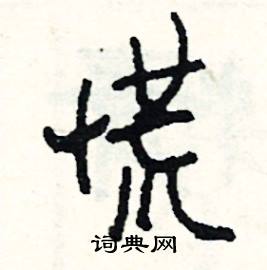 慌
词典网